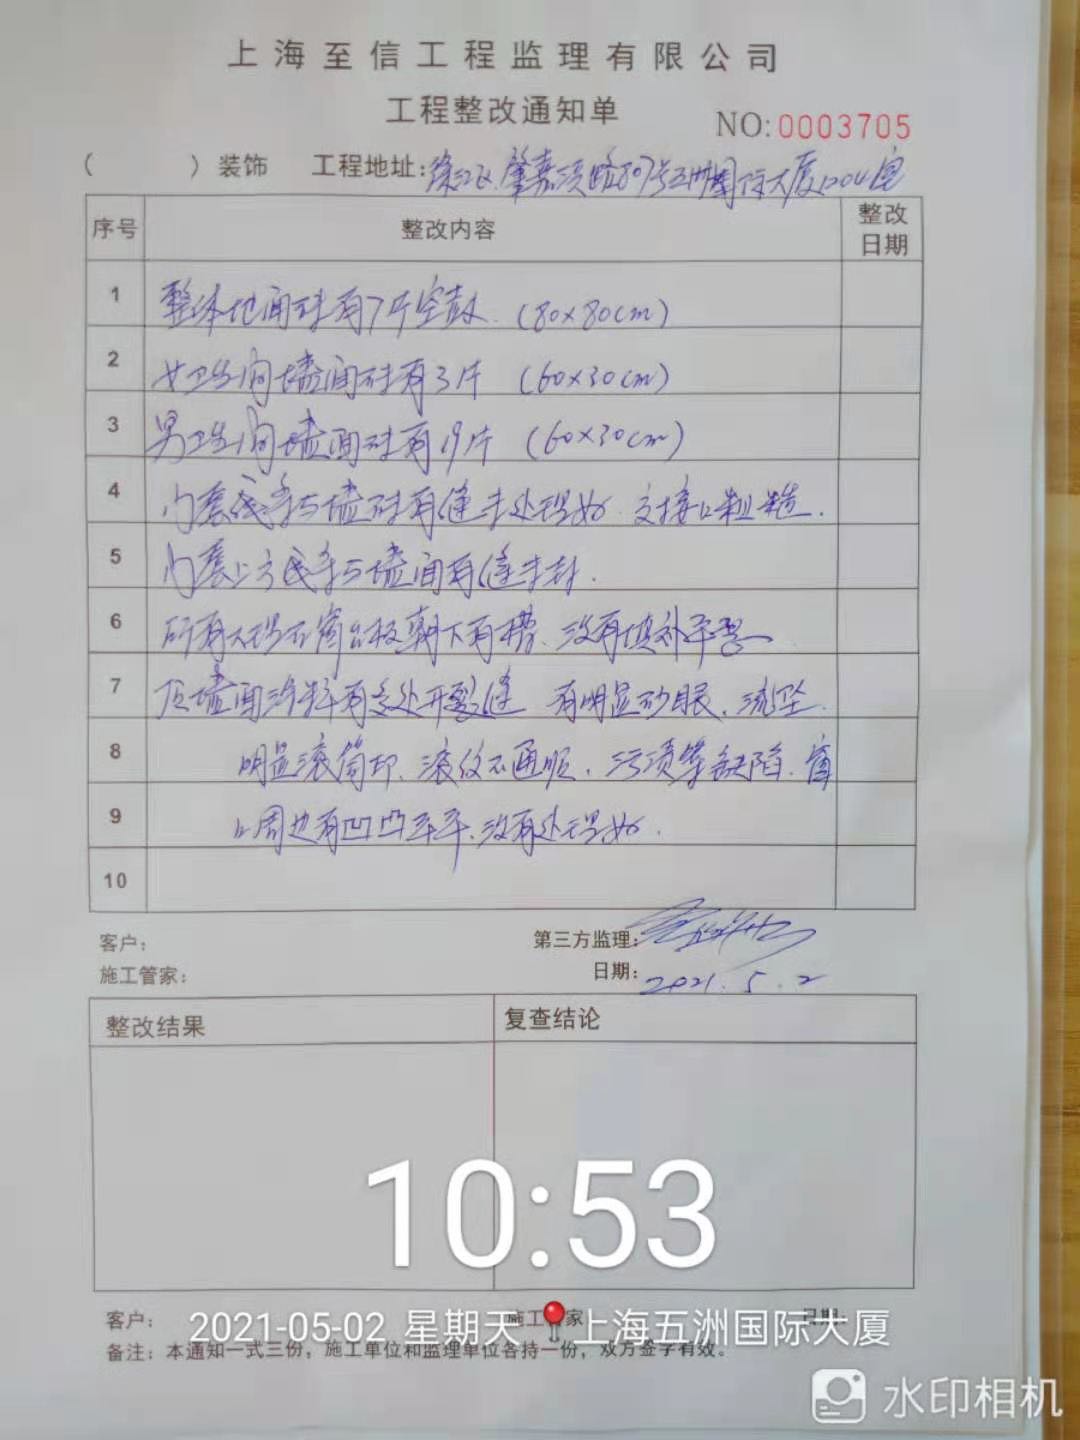 上海至信工程监理有限公司
工程整改通知单
NO:0003705
( ) 装饰 工程地址:徐汇区肇嘉浜路807号五洲国际大厦1204室
序号 整改内容 整改日期
1 整体地面砖有7片空鼓.(80×80cm)
2 女卫生间墙面砖有3片 (60×30cm)
3 男卫生间墙面砖有19片 (60×30cm)
4 门套线条与墙砖有缝未处理好.交接口粗糙.
5 门套上方线条与墙面有缝未封.
6 所有大理石窗台板朝下有槽.没有填补平整
7 顶墙面涂料有多处开裂缝 有明显砂眼.流坠.
8 明显滚筒印.滚纹不通顺.污渍等缺陷.窗
9 上周边有凹凸不平.没有处理好.
10
客户:
第三方监理:
施工管家:
日期: 2021.5.2
整改结果 复查结论
10:53
客户: 施工管家 日期:
2021-05-02 星期天 上海五洲国际大厦
备注:本通知一式三份,施工单位和监理单位各持一份,双方签字有效。
水印相机